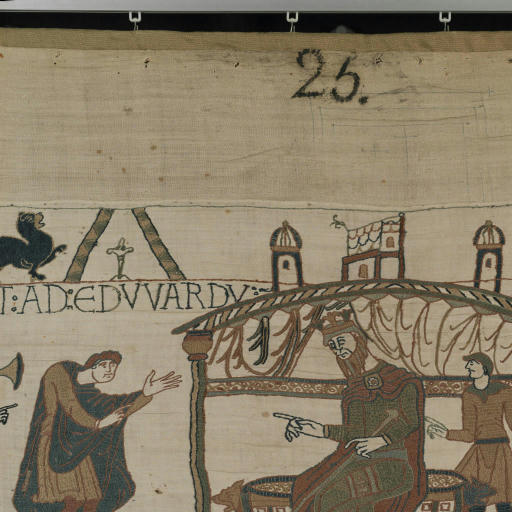 25.
T:AD:EDVVARDV: